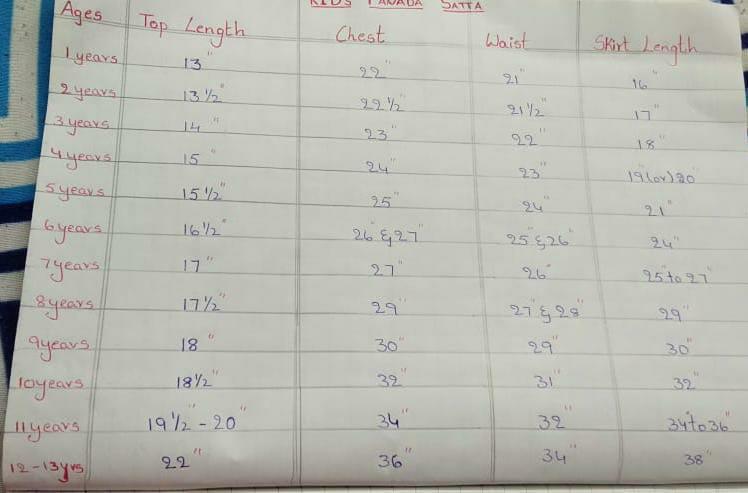 KIDS PAVADA SATTA
Ages Top Length Chest Waist Skirt Length
1 years 13" 22" 21" 16"
2 years 13 1/2" 22 1/2" 21 1/2" 17"
3 years 14" 23" 22" 18"
4 years 15" 24" 23" 19(or)20"
5 years 15 1/2" 25" 24" 21"
6 years 16 1/2" 26" & 27" 25" & 26" 24"
7 years 17" 27" 26" 25" to 27"
8 years 17 1/2" 29" 27" & 28" 29"
9 years 18" 30" 29" 30"
10 years 18 1/2" 32" 31" 32"
11 years 19 1/2" - 20" 34" 32" 34" to 36"
12-13 yrs 22" 36" 34" 38"